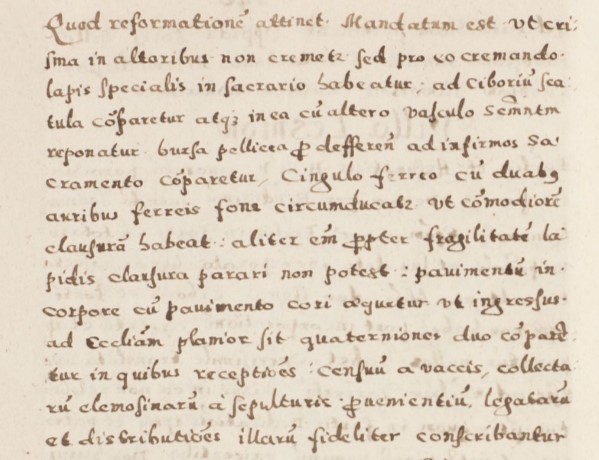 Quod reformationē attinet. Mandatum est vt cri:
sma in altoribus non cremetr sed pro eo cremando.
lapis specialis in sacrario habeatur, ad Ciboriū sca
tula cōparetur atq; in ea cū altero vasculo Semn̄tm
reponatur bursa pellicea ꝑ defferen̄ ad infirmos Sa
cramento cōparetur, Cingulo ferreo cū duabꝫ
auribus ferreis fons circumducatr vt cōmodiorē
clausurā habeat: aliter em̄ ꝓpter fragilitatē la
pidis clausura parari non potest: pavimentū in
corpore cū pavimento cori æquetur vt ingressus
ad Eccliām planior sit quaterniones duo cōparē
tur in quibus receptiōēs: Censuū a vaccis, collecta
rū elemosinarū à sepulturis ꝓuenientiū, legatarū
et distributiōēs illarū fideliter conscribantur